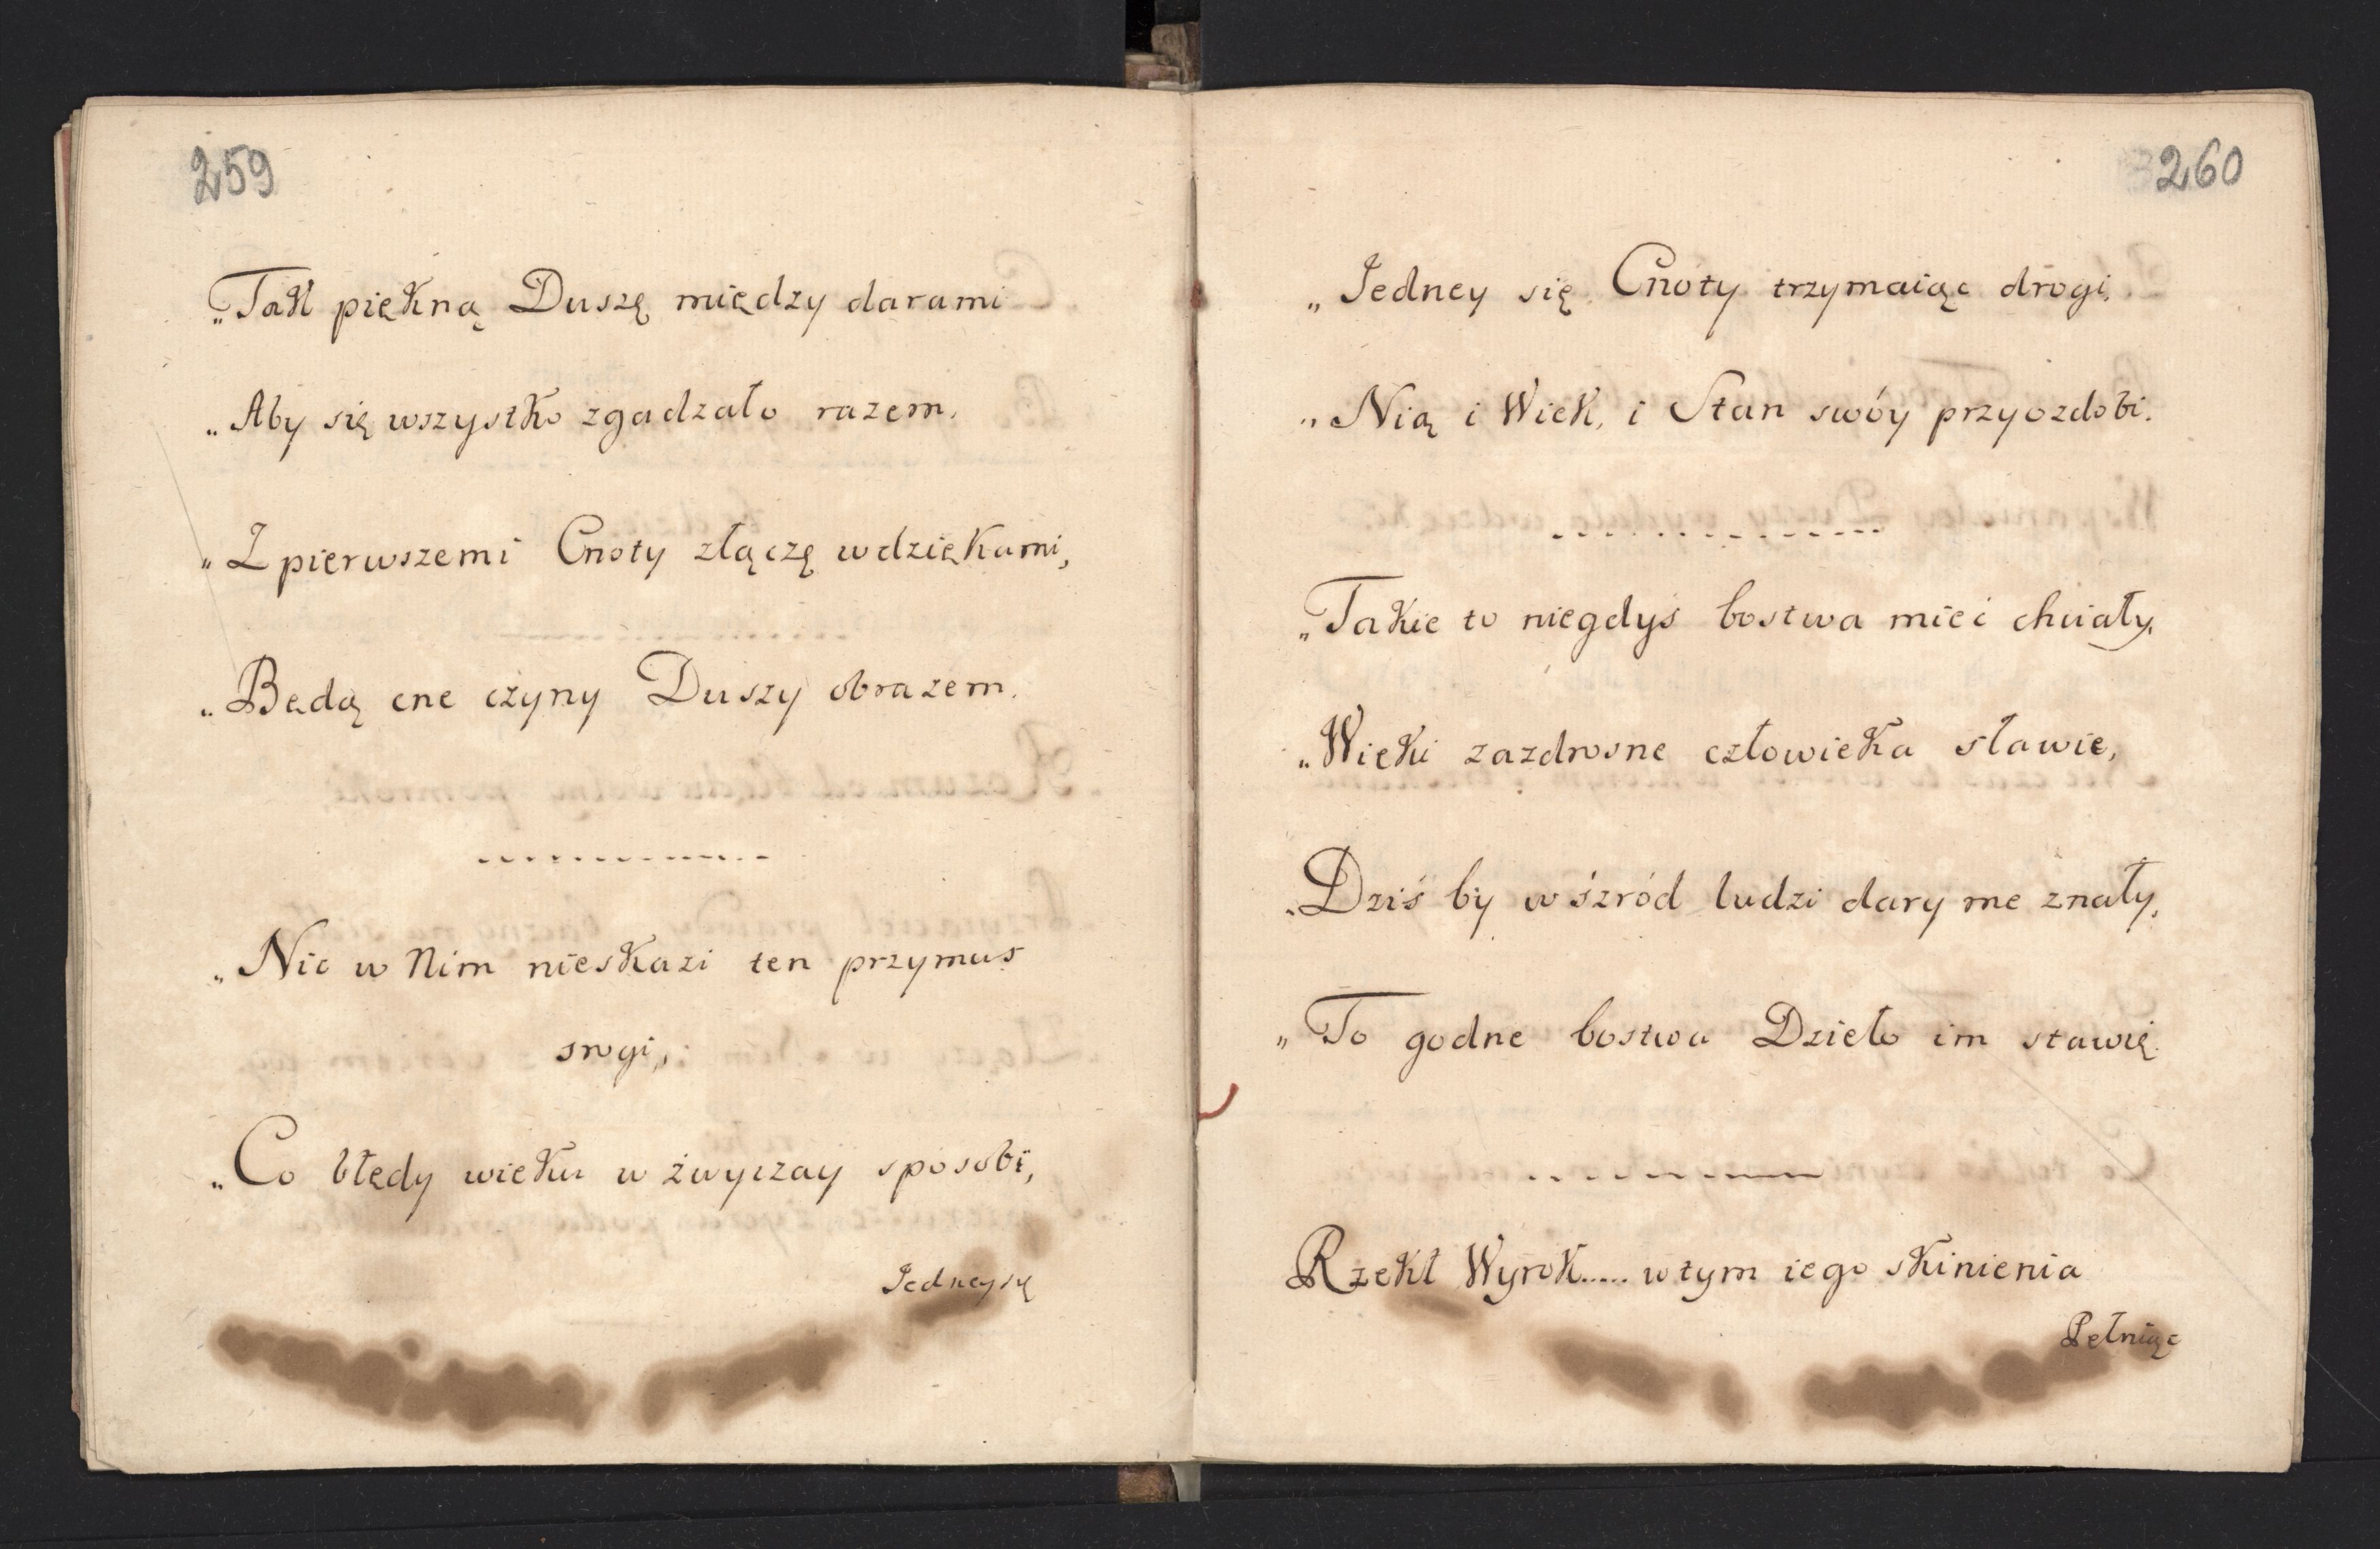 259
„Tak piękną Duszę między darami
„Aby się wszystko zgadzało razem.
„Z pierwszemi Cnoty złączę wdziękami,
„Będą cne czyny Duszy obrazem.
„Nic w Nim nieskazi ten przymus
srogi,
„Co błędy wieku w żwyczay sposobi,
Jedney się
260
„Jedney się Cnoty trzymaiąc drogi,
„Nią i Wiek, i Stan swóy przyozdobi.
„Takie to niegdyś bostwa mieć chciały,
„Wieki zazdrosne człowieka sławie,
„Dziś by wśzród ludzi dary me znały,
„To godne bostwa Dzieło im stawię.
Rzekł Wyrok..... w tym iego skinienia
Pełniąc